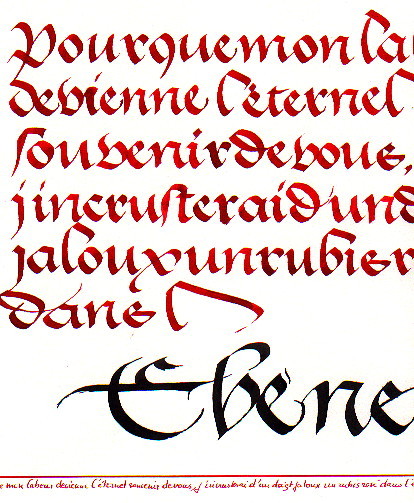 Pour que mon la
devienne l'éternel
souvenir de vous,
j'incrusterai d'un d
jaloux un rubis r
dans l'
Ebène
mon labeur devienne l'éternel souvenir de vous, j'incrusterai d'un doigt jaloux un rubis rond dans l'